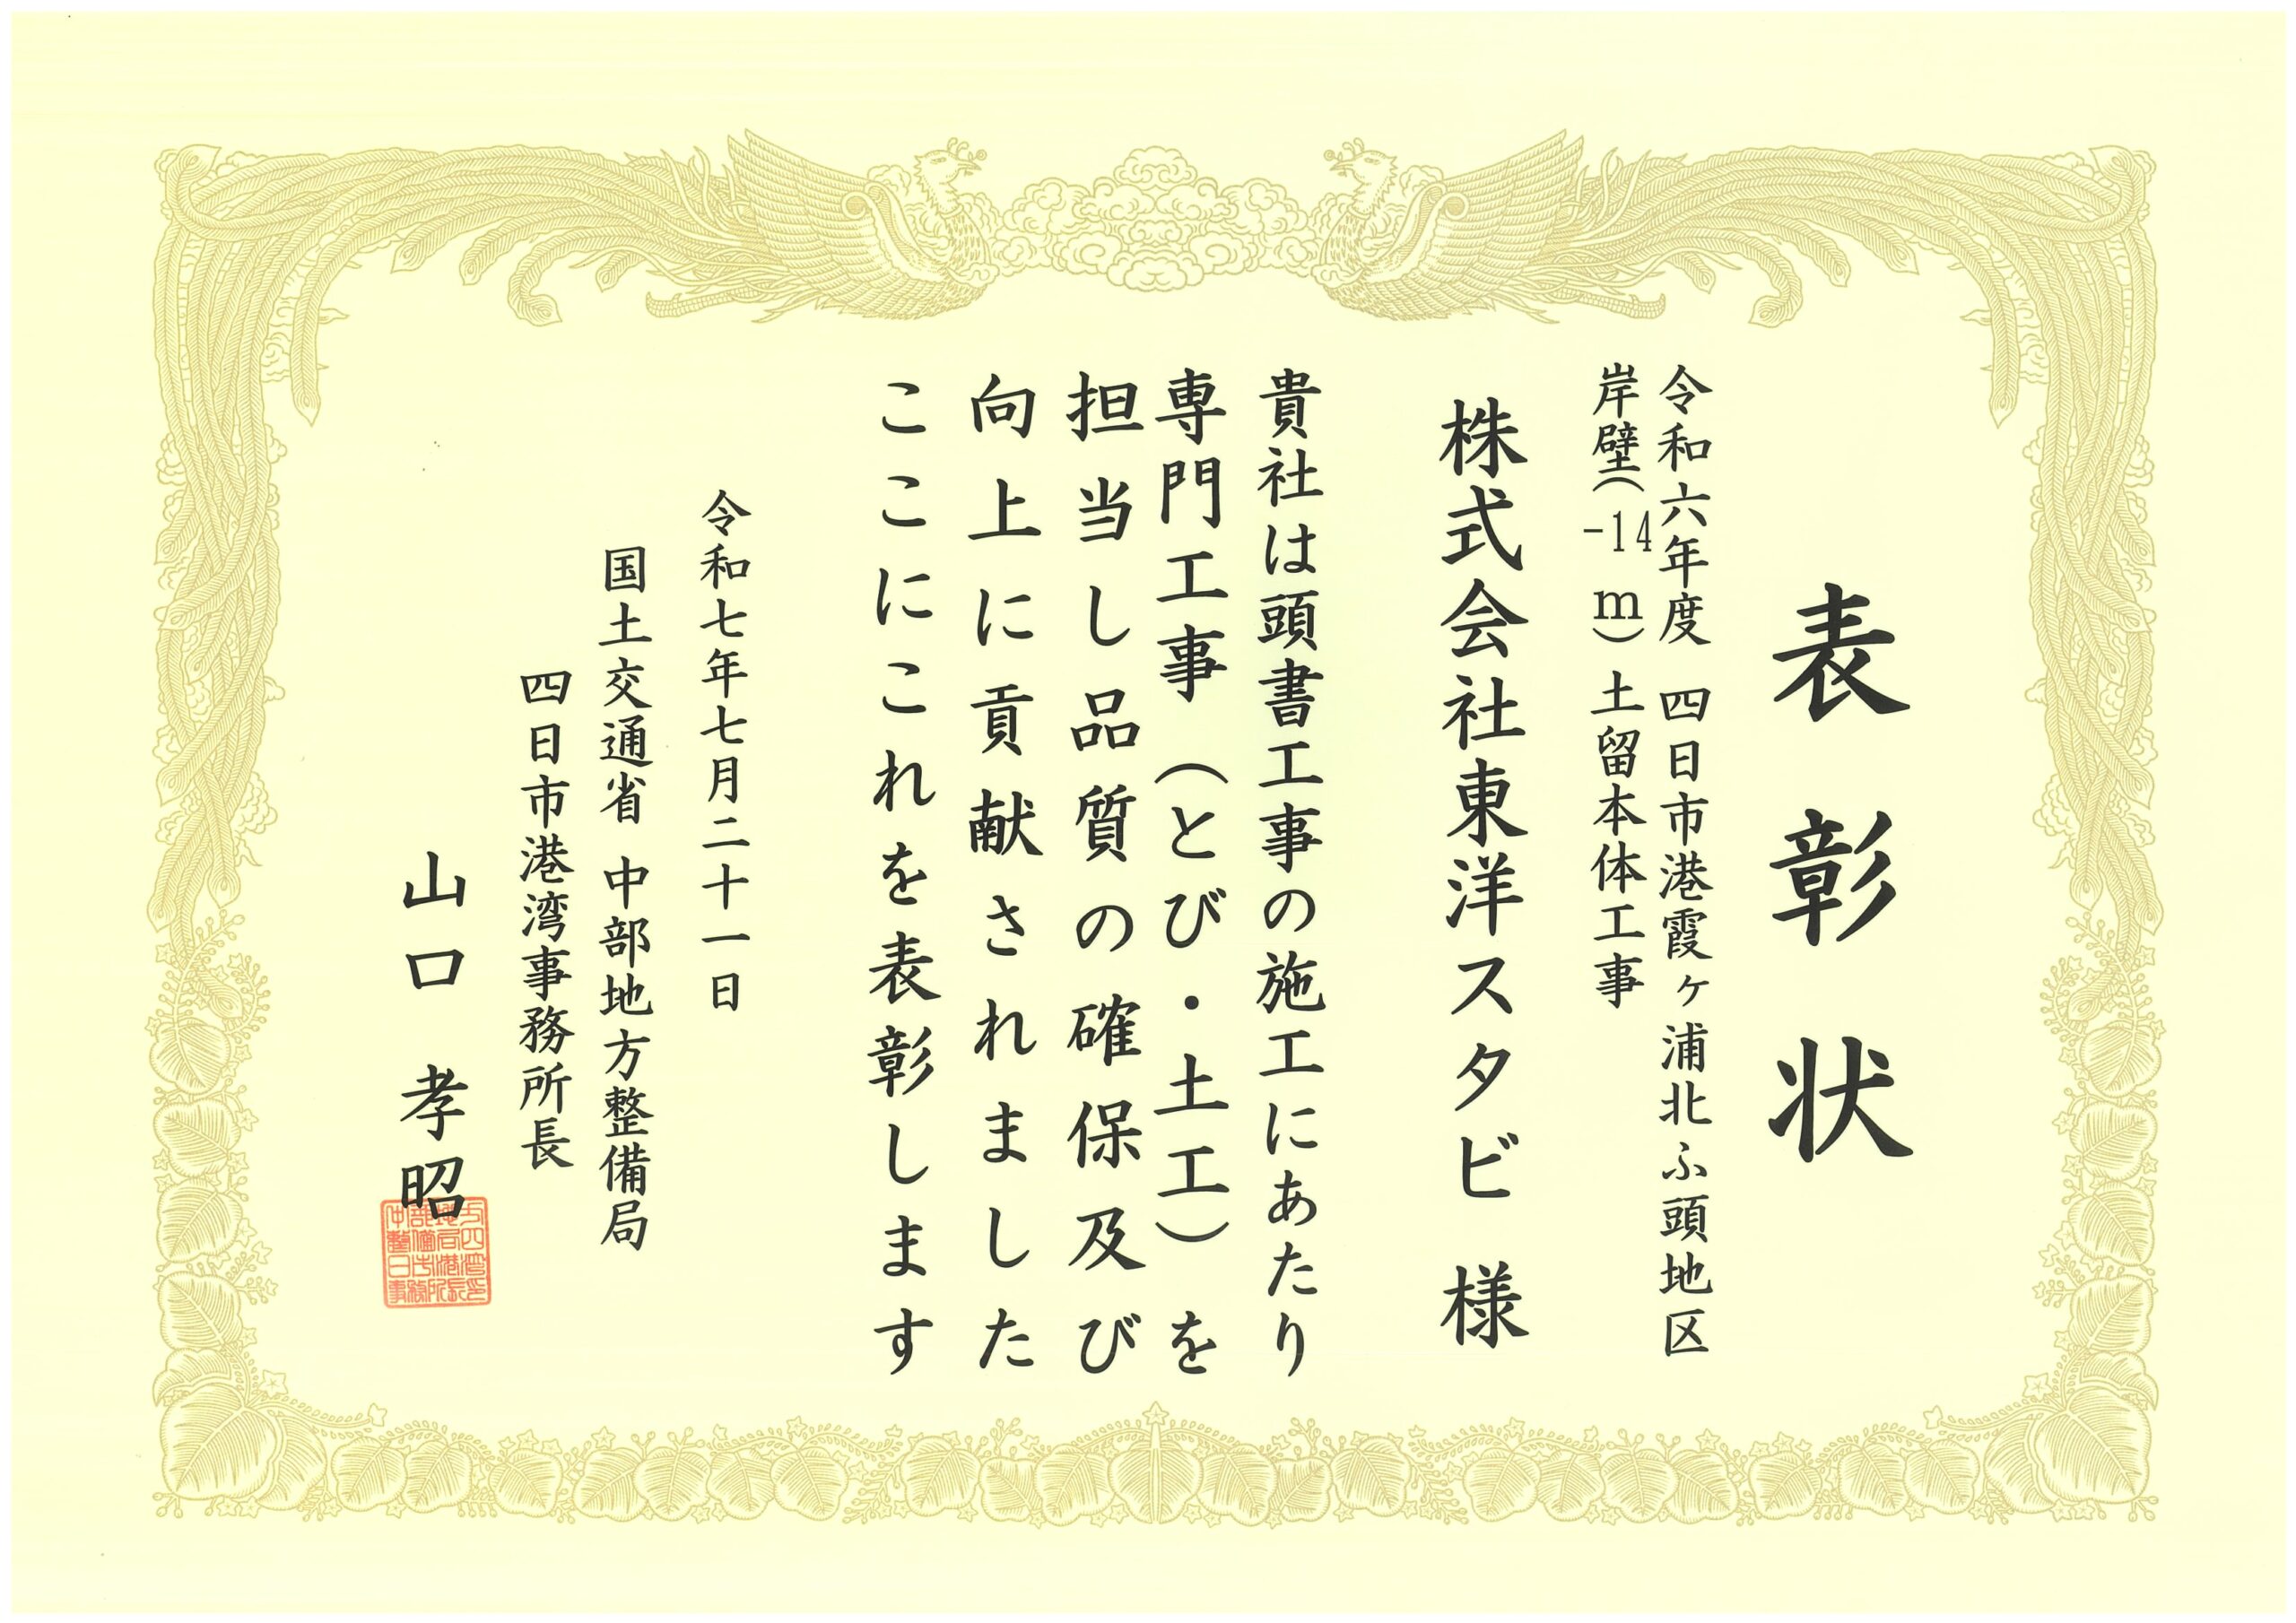 表彰状
令和六年度 四日市港霞ヶ浦北ふ頭地区
岸壁(-14m)土留本体工事
株式会社東洋スタビ 様
貴社は頭書工事の施工にあたり
専門工事(とび・土工)を
担当し品質の確保及び
向上に貢献されました
ここにこれを表彰します
令和七年七月二十一日
国土交通省 中部地方整備局
四日市港湾事務所長
山口 孝昭